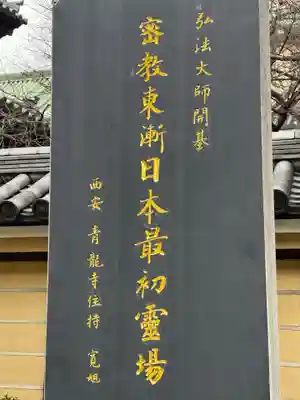 弘法大師開基
密教東漸日本最初靈場
西安 青龍寺住持 寬旭